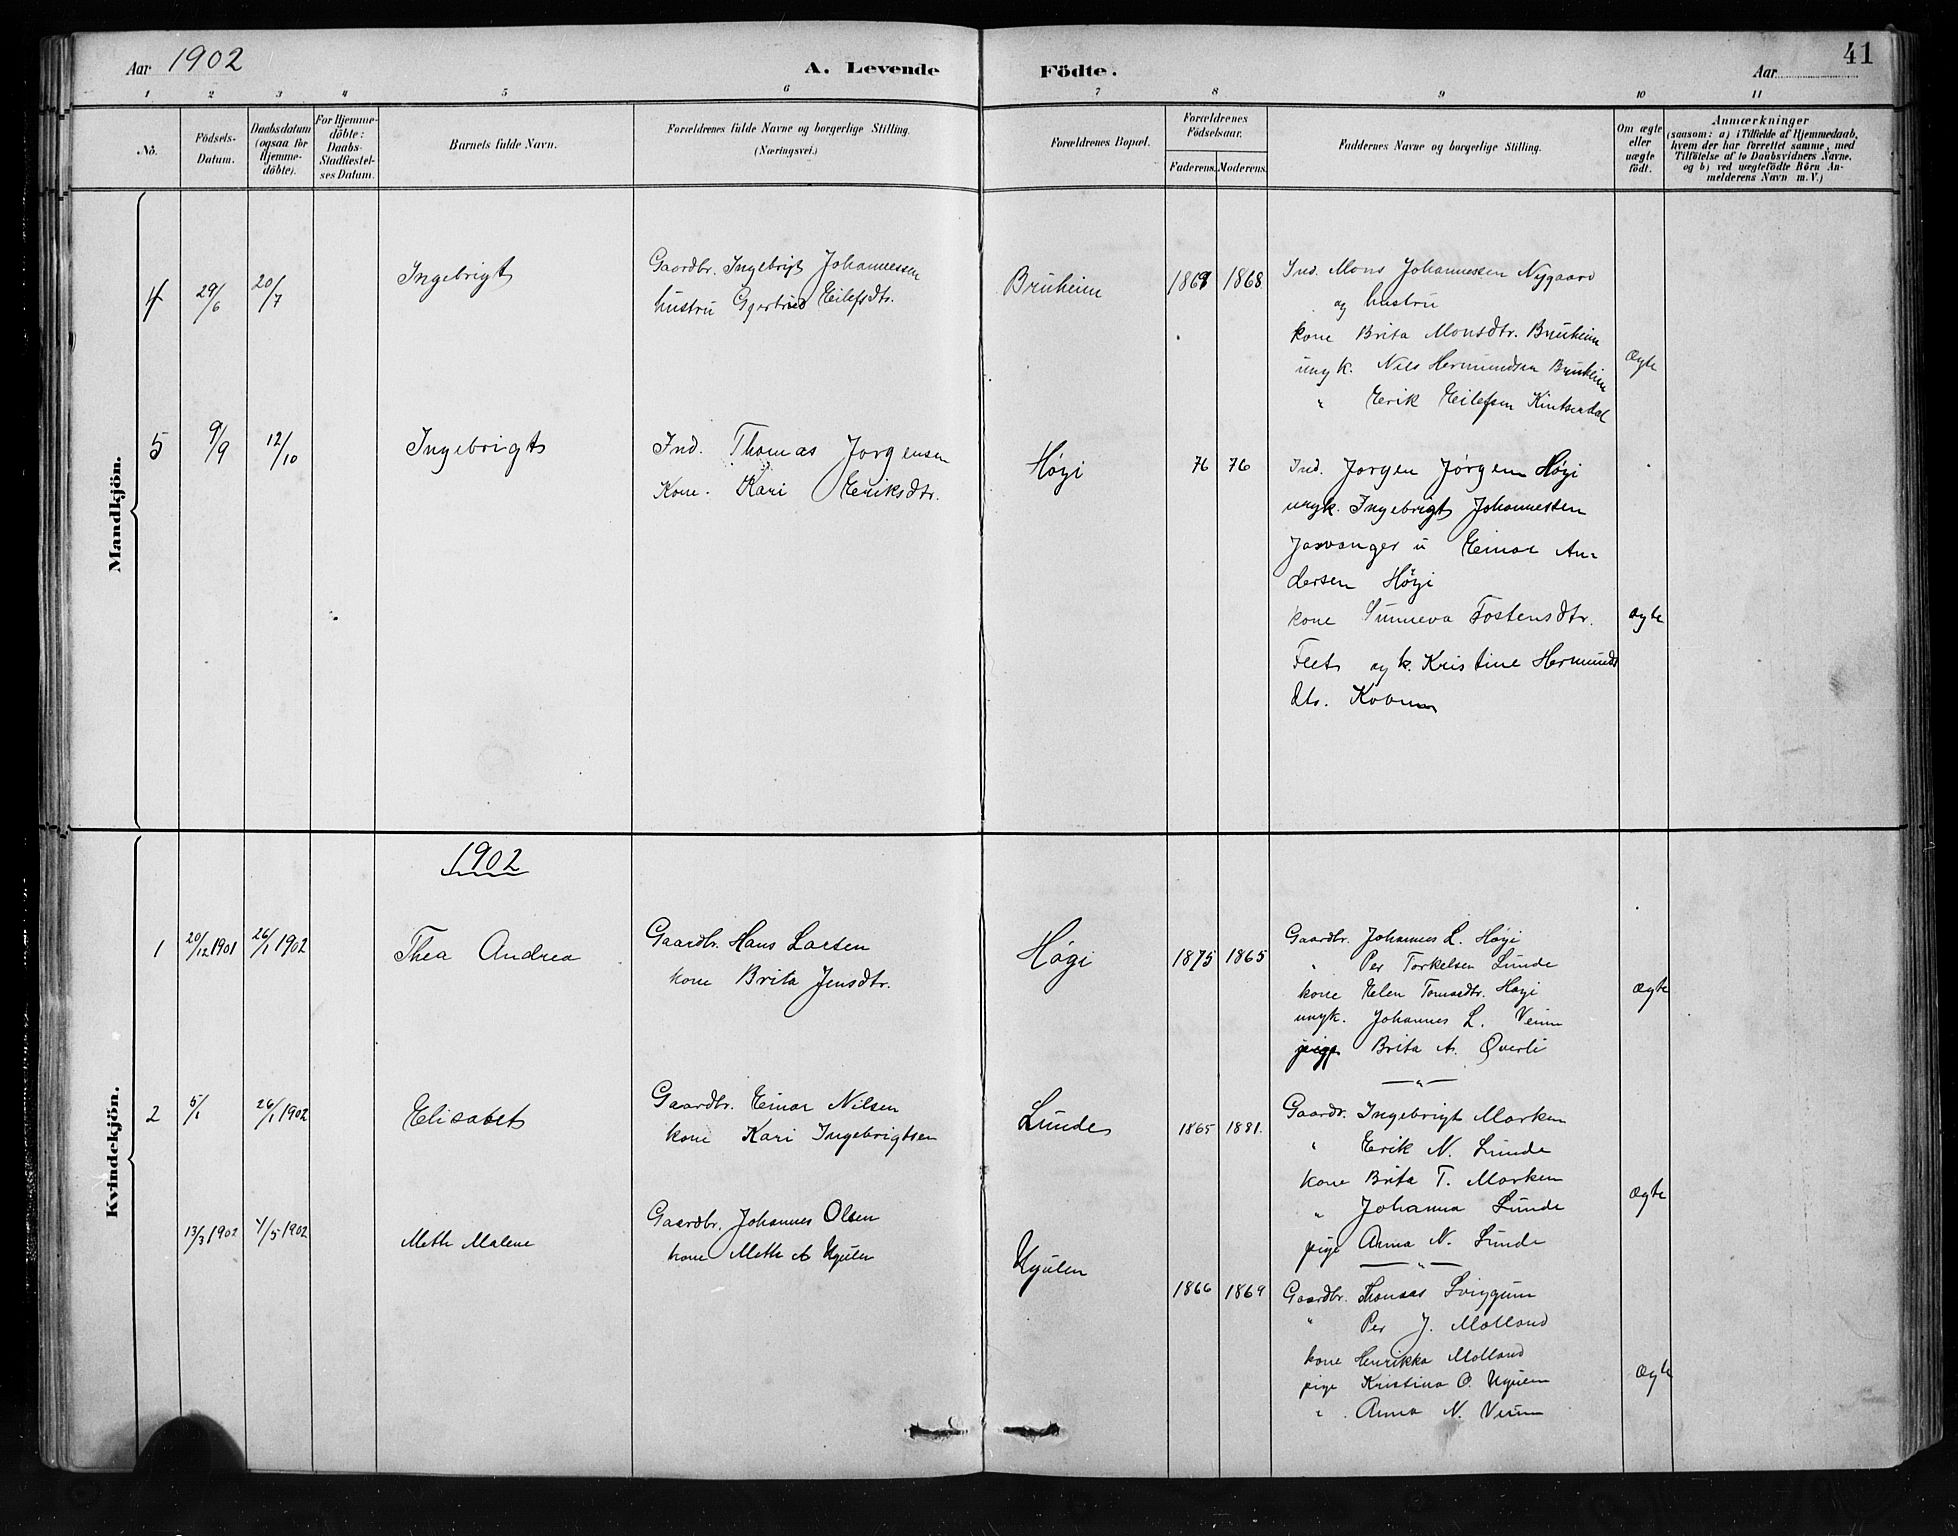 Aar 1902
A. Levende Födte.
Aar
41
1 2 3 4 5 6 7 8 9 10 11
No.
Födsels-
Datum.
Daabsdatum
(ogsaa for
Hjemme-
döbte).
For Hjemme-
döbte:
Daabs-
Stadfæstel-
ses Datum.
Barnets fulde Navn.
Forældrenes fulde Navne og borgerlige Stilling.
(Næringsvei.)
Forældrenes Bopæl.
Forældrenes
Födselsaar.
Faderens. Moderens.
Faddernes Navne og borgerlige Stilling.
Om ægte
eller
uægte
födt.
Anmærkninger
(saasom: a) i Tilfælde af Hjemmedaab,
hvem der har forrettet samme, med
Tilföielse af to Daabsvidners Navne,
og b) ved uægtefödte Börn An-
melderens Navn m. V.)
Mandkjön.
4 29/6 20/7 Ingebrigt
Gaardbr. Ingebrigt Johannessen
hustru Gjertrud Eilefsdtr.
Bruheim 1869 1868
Ind. Mons Johannessen Nygaard
og hustru
kone Brita Monsdtr. Bruheim
ungk. Nils Hermundsen Bruheim
" Erik Eilefsen Kintserdal
Ægte
5 9/9 12/10 Ingebrigt
Ind. Thomas Jorgensen
Kone. Kari Eriksdtr.
Høgi 76 76
Ind. Jorgen Jörgens Høgi
ungk. Ingebrigt Johannessen
Jasvanger u Einar An-
dersen Høgi
kone Sunneva Tostensdtr.
Feet og k. Kristine Hermunds
dtr.
ægte
Kvindekjön.
1902
1 20/12 1901 26/1 1902 Thea Andrea
Gaardbr. Hans Larsen
kone Brita Jensdtr.
Høgi 1875 1865
Gaardbr. Johannes L. Høgi
" Per Torkelsen Lunde
kone Elen Tomasdtr. Høgi
ungk. Johannes L. Veum
pige Brita A. Qverli
Ægte
— " —
2 5/1 26/1 1902 Elisabet
Gaardbr. Einar Nilsen
kone Kari Ingebrigtsen
Lunde 1865 1881.
Gaardbr. Ingebrigt Marken
" Erik N. Lunde
kone Brita T. Marken
" Johanna Lunde
pige Anna N. Lunde
Ægte
— " —
13/3 1902 4/5 1902 Meth Malene
Gaardbr. Johannes Olsen
kone Meth A Ugulen
Ugulen 1866 1869
Gaardbr. Thomas Sviggum
" Per J. Molland
kone Henrikka Molland
pige Kristina O. Ugulen
" Anna N. Veum
Ægte